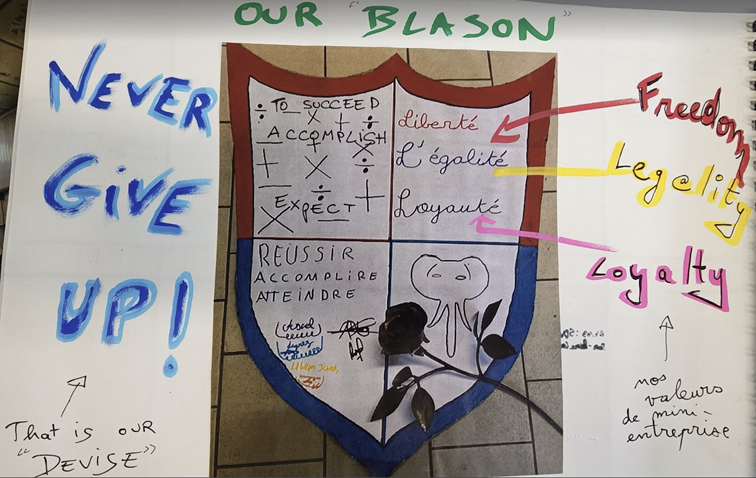 OUR "BLASON"
NEVER
GIVE
UP!
THAT is OUR
"DEVISE"
÷ TO SUCCEED
X + ÷
ACCOMPLISH
+ X ÷
EXPECT +
X
Liberté
L'égalité
Loyauté
REUSSIR
ACCOMPLIRE
ATTEINDRE
Freedom
Legality
Loyalty
nos
valeurs
de mini-
entreprise